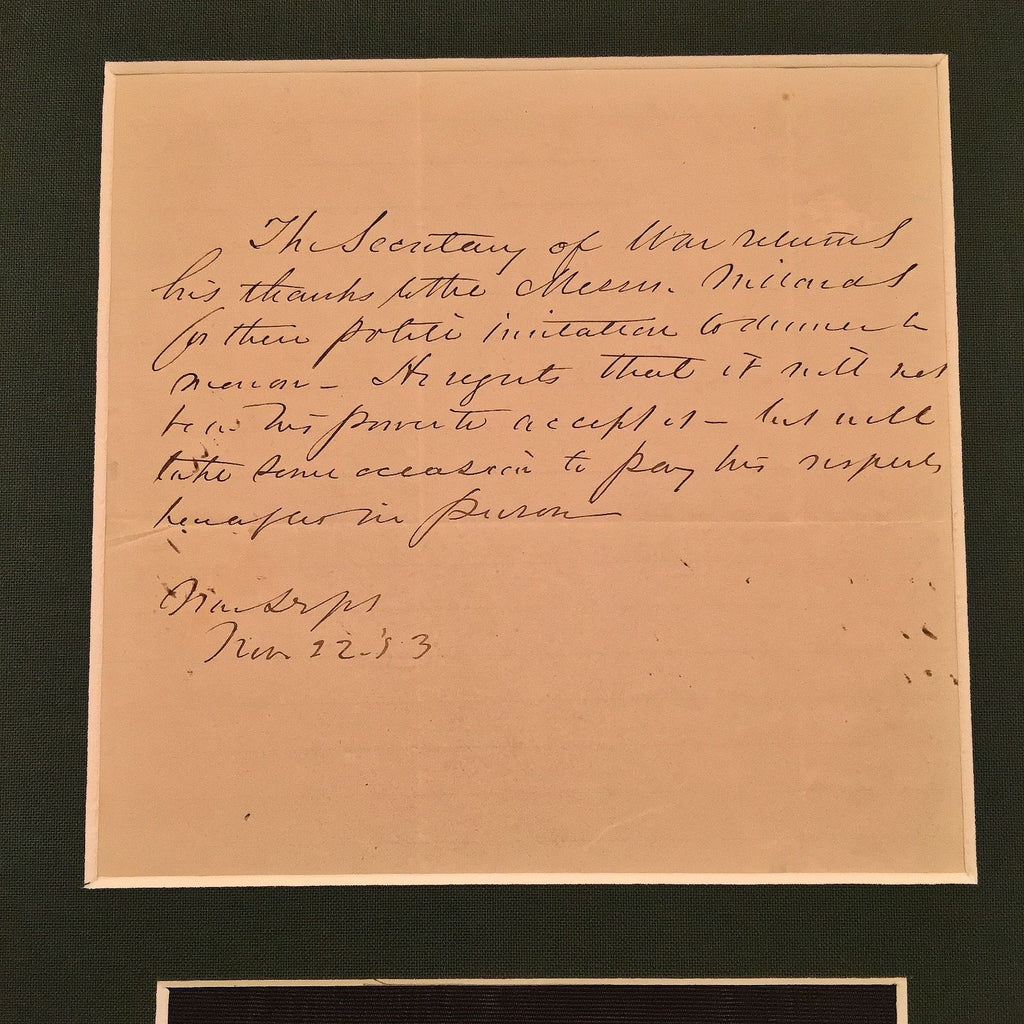 The Secretary of War returns
his thanks to the Messrs. Willards
for their polite invitation to dinner to
morrow – He regrets that it will not
be in his power to accept it – but will
take some occasion to pay his respects
hereafter in person
War Dept
Nov. 22. '53